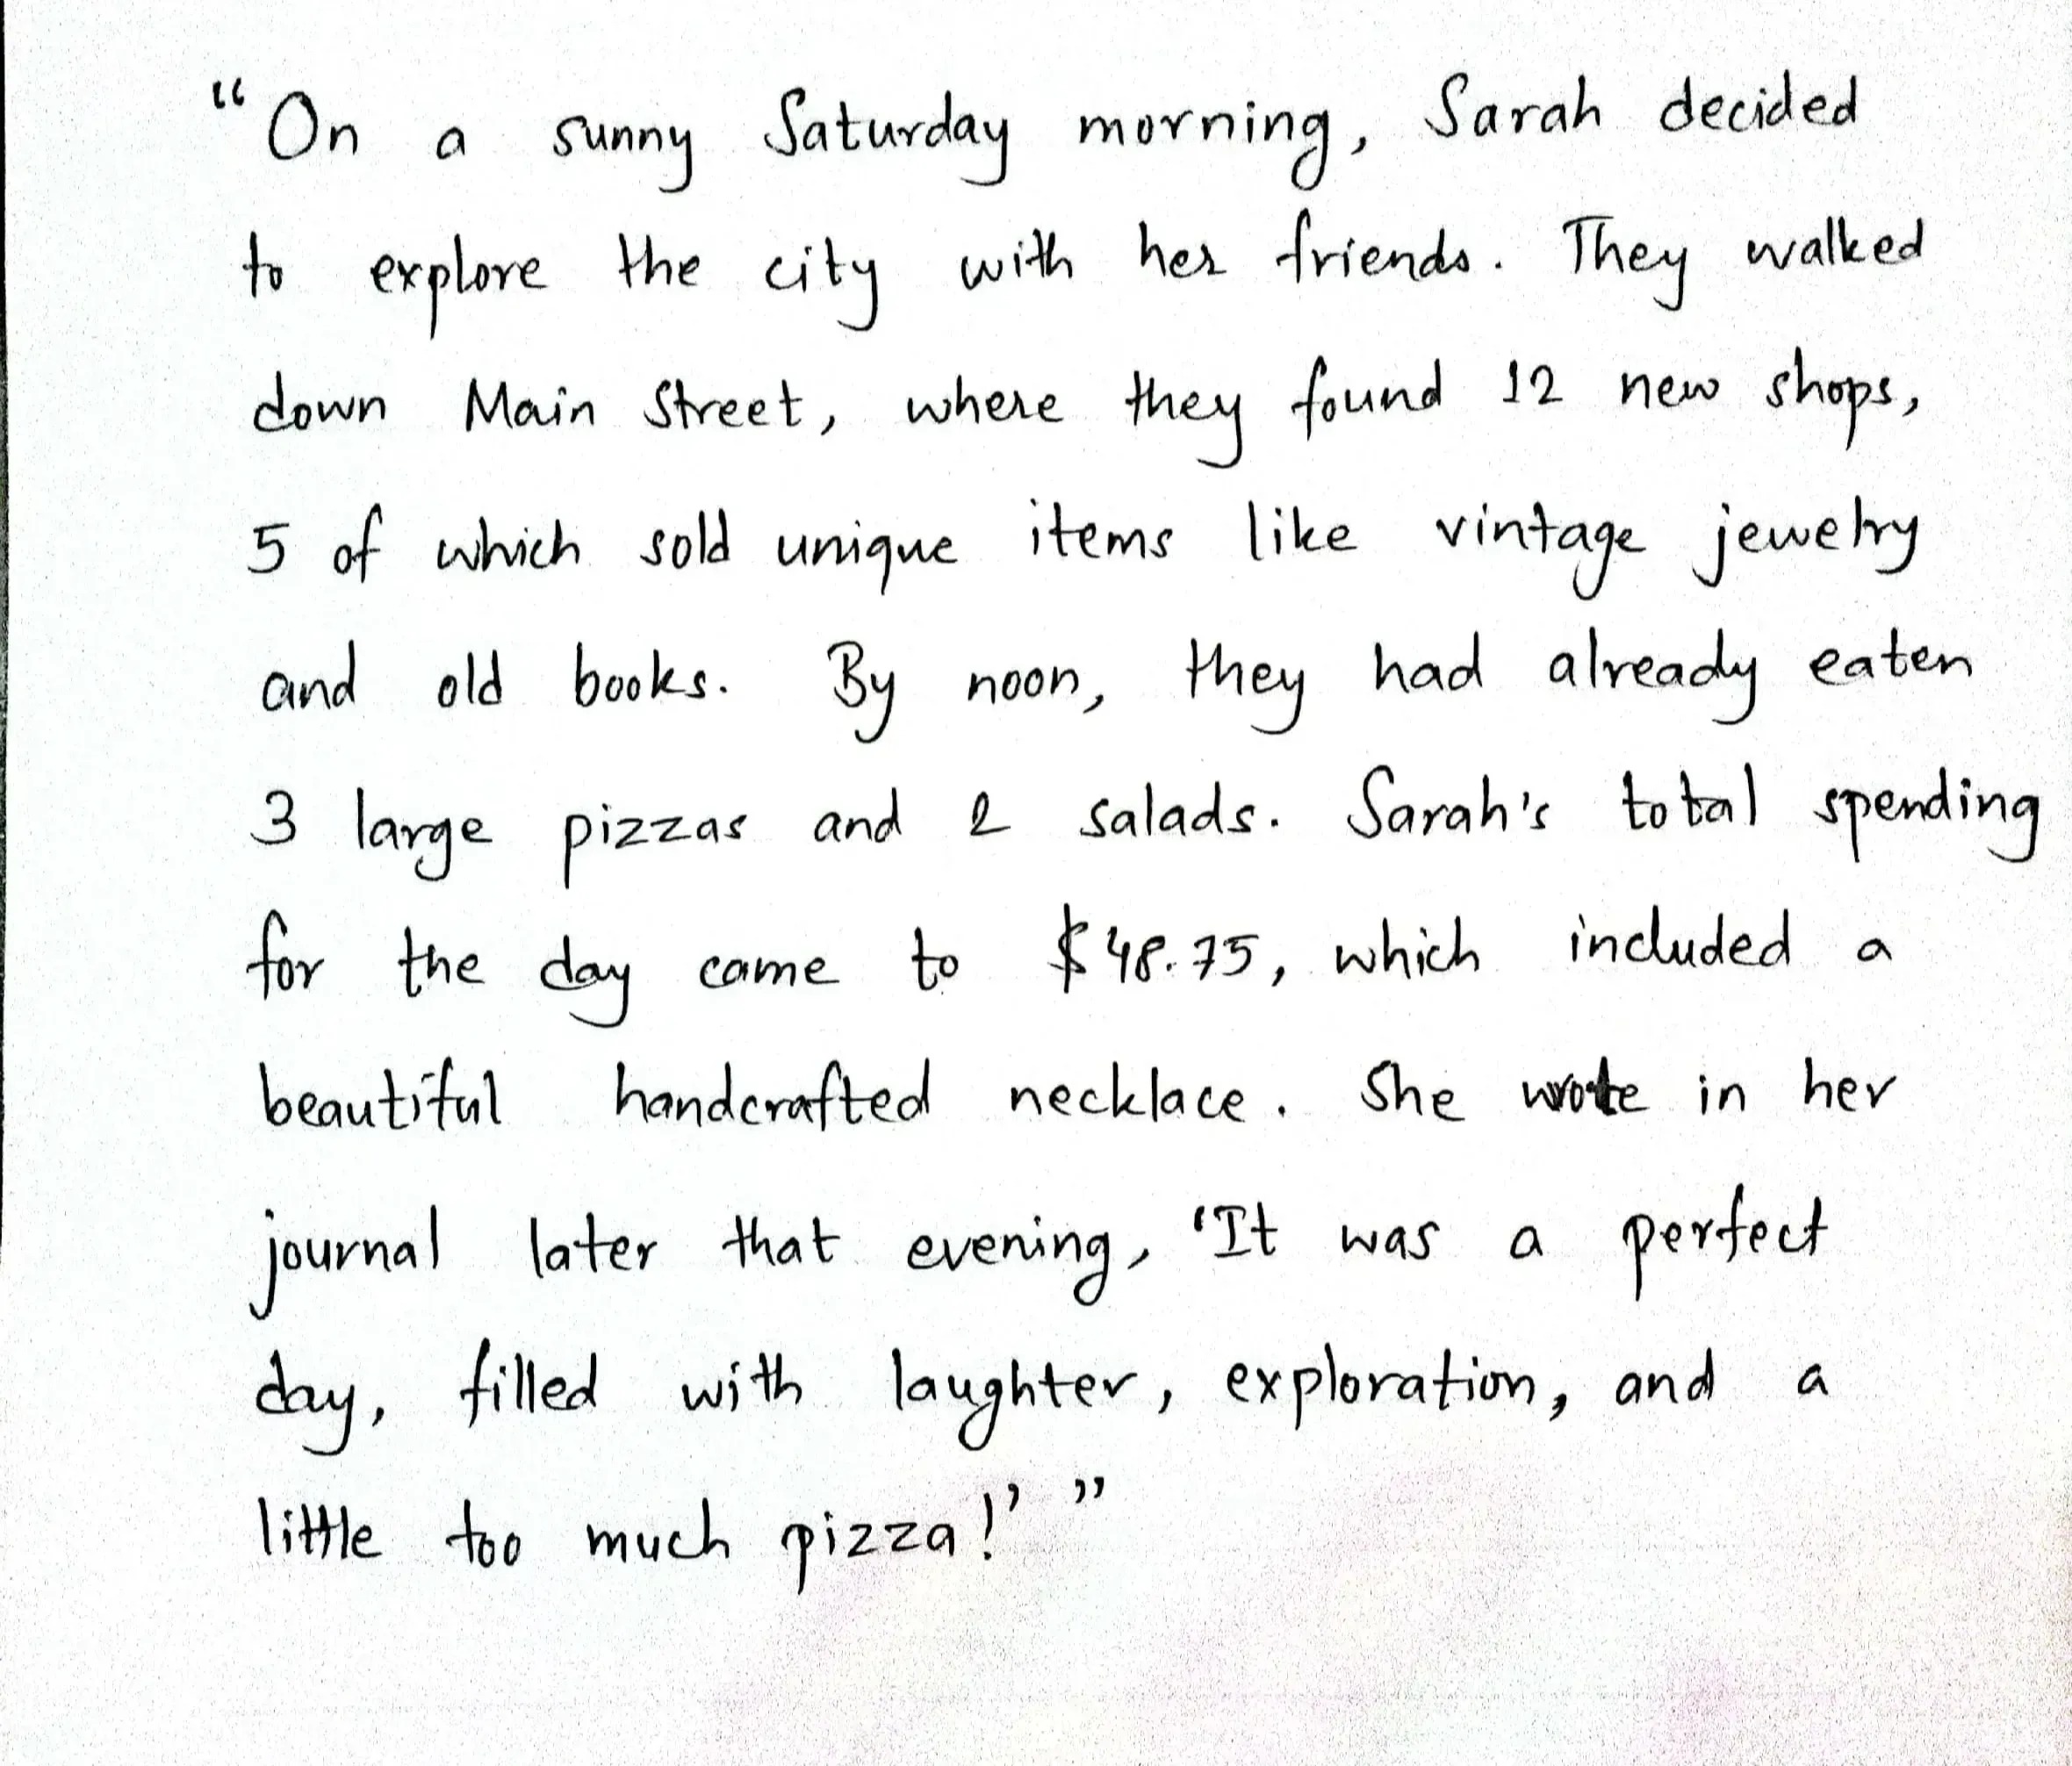 “On a sunny Saturday morning, Sarah decided
to explore the city with her friends. They walked
down Main Street, where they found 12 new shops,
5 of which sold unique items like vintage jewelry
and old books. By noon, they had already eaten
3 large pizzas and 2 salads. Sarah's total spending
for the day came to $48.75, which included a
beautiful handcrafted necklace. She wrote in her
journal later that evening, ‘It was a perfect
day, filled with laughter, exploration, and a
little too much pizza!’ ”